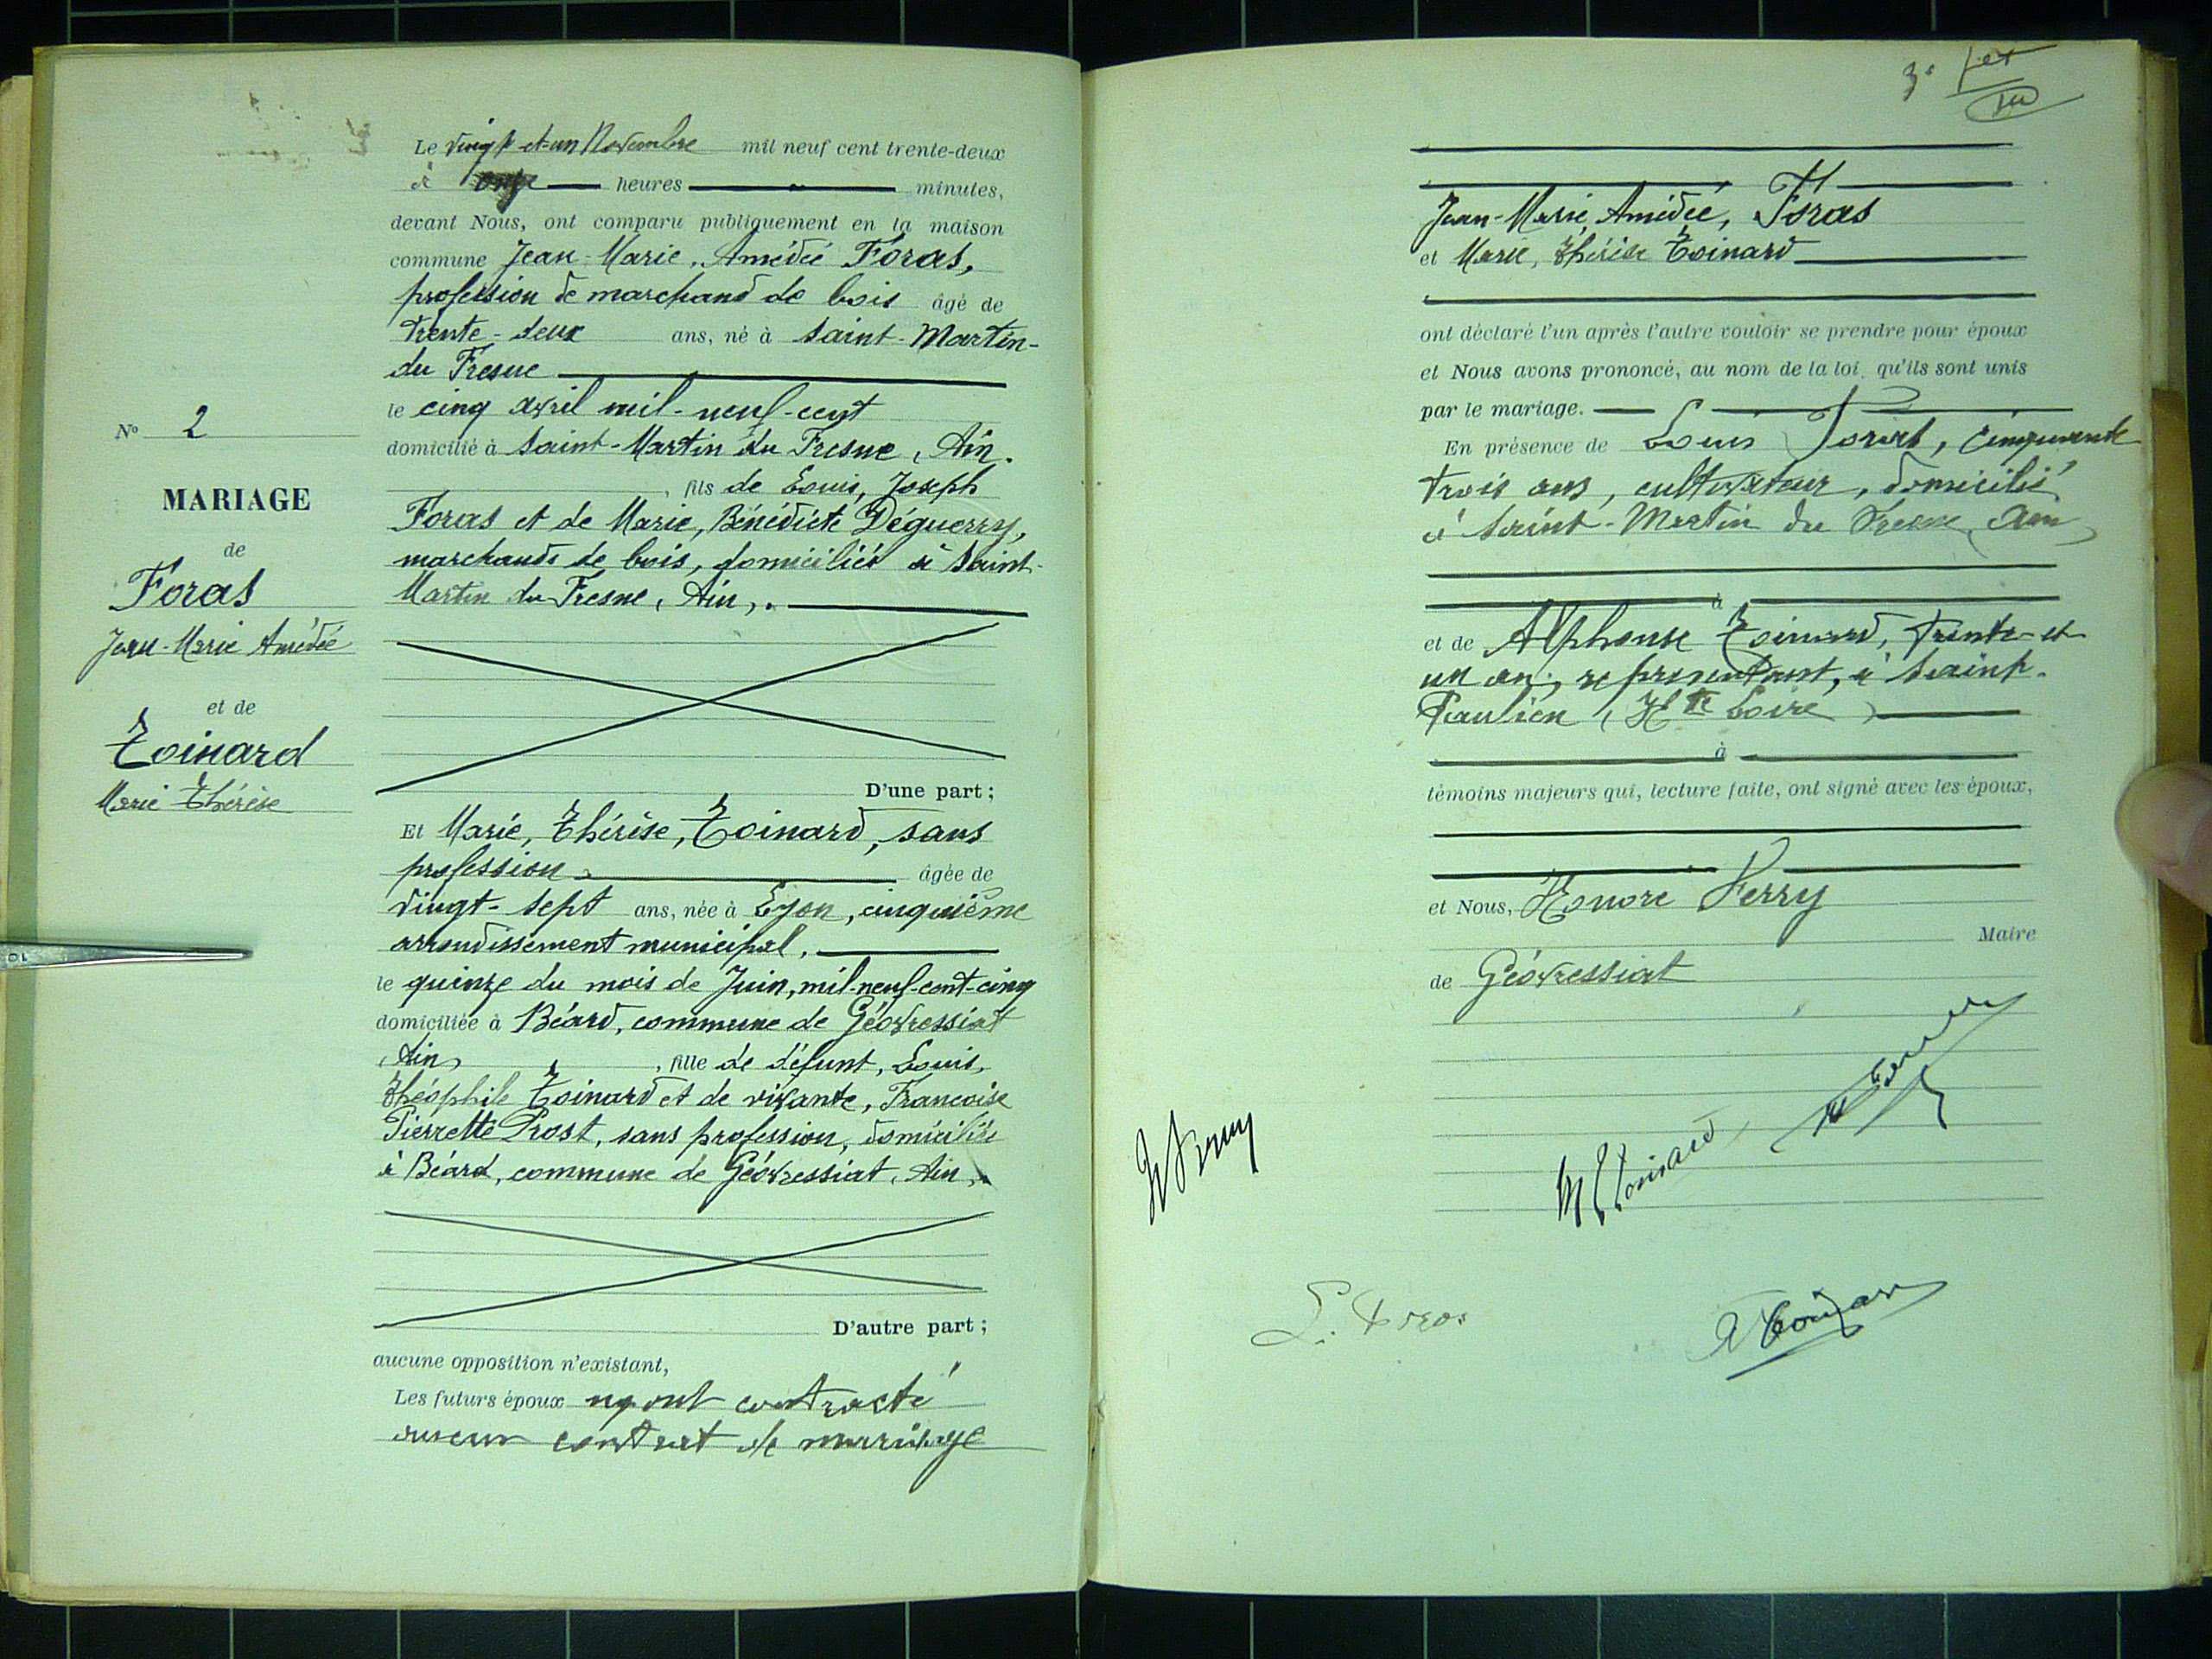 N° 2
MARIAGE
de
Foras
Jean-Marie Amédée
et de
Toinard
Marie Thérèse
Le vingt-et-un Novembre mil neuf cent trente-deux
à onze heures minutes,
devant Nous, ont comparu publiquement en la maison
commune Jean-Marie, Amédée Foras,
profession de marchand de bois âgé de
trente-deux ans, né à Saint-Martin-
du Fresne
le cinq avril mil-neuf-cent
domicilié à Saint-Martin du Fresne, Ain.
, fils de Louis, Joseph
Foras et de Marie, Bénédicte Déguerry,
marchands de bois, domiciliés à Saint-
Martin du Fresne, Ain,.
D'une part ;
Et Marie, Thérèse, Toinard, sans
profession âgée de
vingt-sept ans, née à Lyon, cinquième
arrondissement municipal.
le quinze du mois de Juin, mil-neuf-cent-cinq
domiciliée à Béard, commune de Géovressiat
(Ain) , fille de défunt, Louis,
Théophile Toinard et de vivante, Francoise
Pierrette Prost, sans profession, domiciliée
à Béard, commune de Géovressiat, Ain,
D'autre part ;
aucune opposition n'existant,
Les futurs époux n'ont contracté
aucun contrat de mariage
3e
Jean-Marie, Amédée, Foras
et Marie, Thérèse Toinard
ont déclaré l'un après l'autre vouloir se prendre pour époux
et Nous avons prononcé, au nom de la loi, qu'ils sont unis
par le mariage.
En présence de Louis Foras, cinquante
trois ans, cultivateur, domicilié
à Saint-Martin du Fresne (Ain)
à
et de Alphonse Toinard, trente-et-
un an, représentant, à Saint-
Paulien (Hte Loire)
à
témoins majeurs qui, lecture faite, ont signé avec les époux,
et Nous, Honoré Ferry
Maire
de Géovressiat
M Toinard
H Ferry
L. Foras
A Toinard